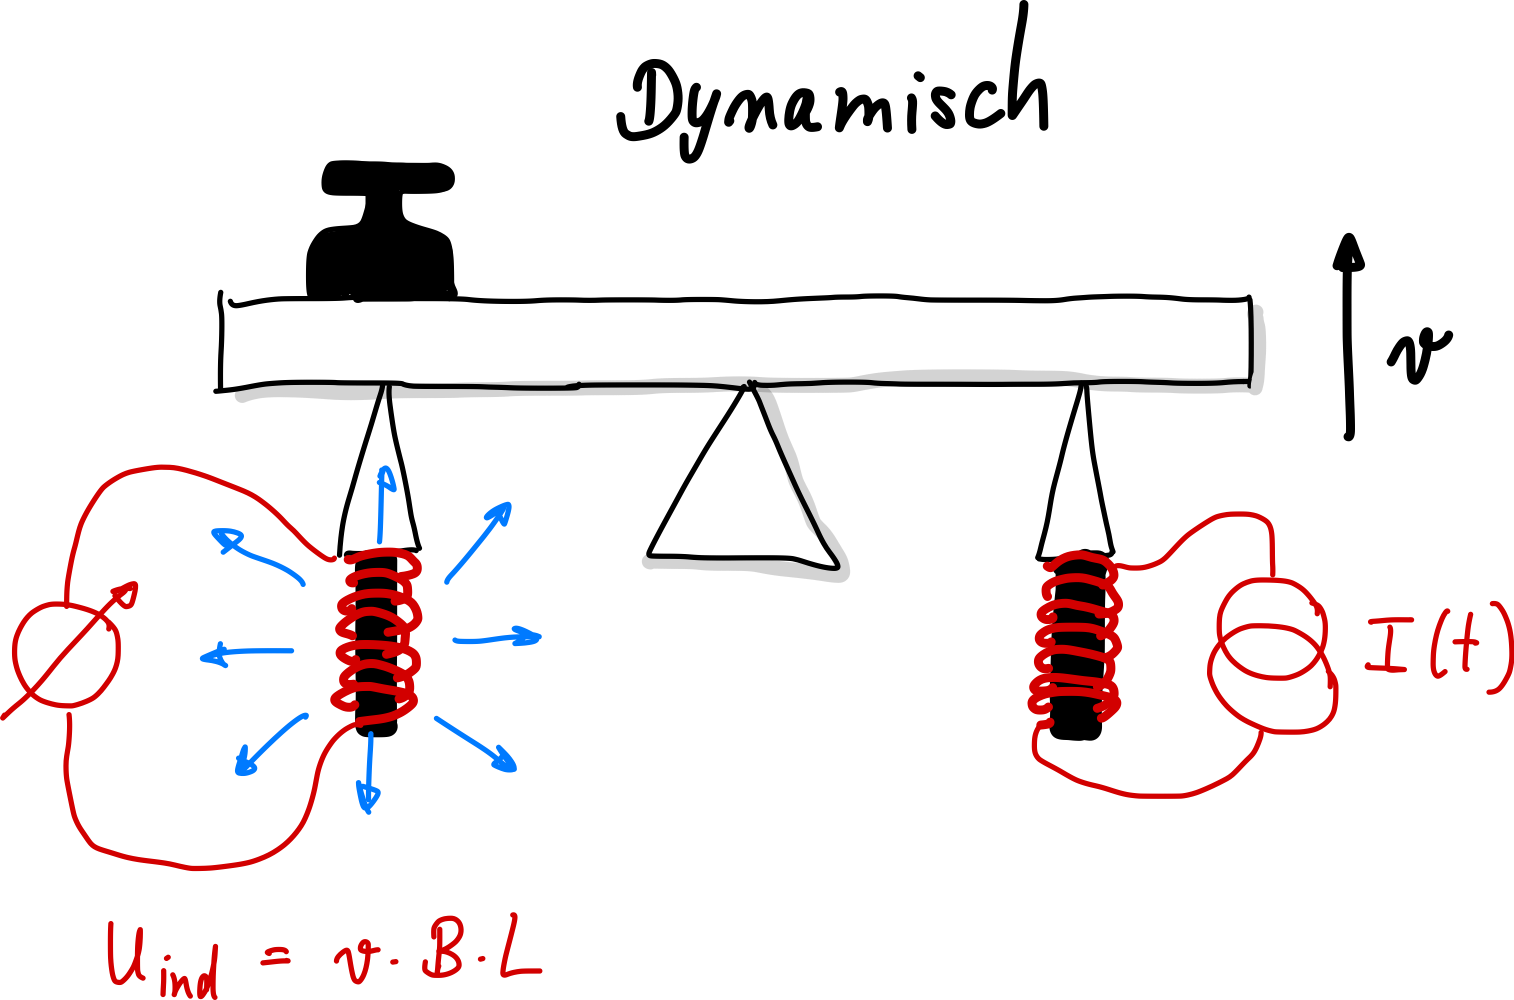 Dynamisch
v
I(t)
U_ind = v · B · L